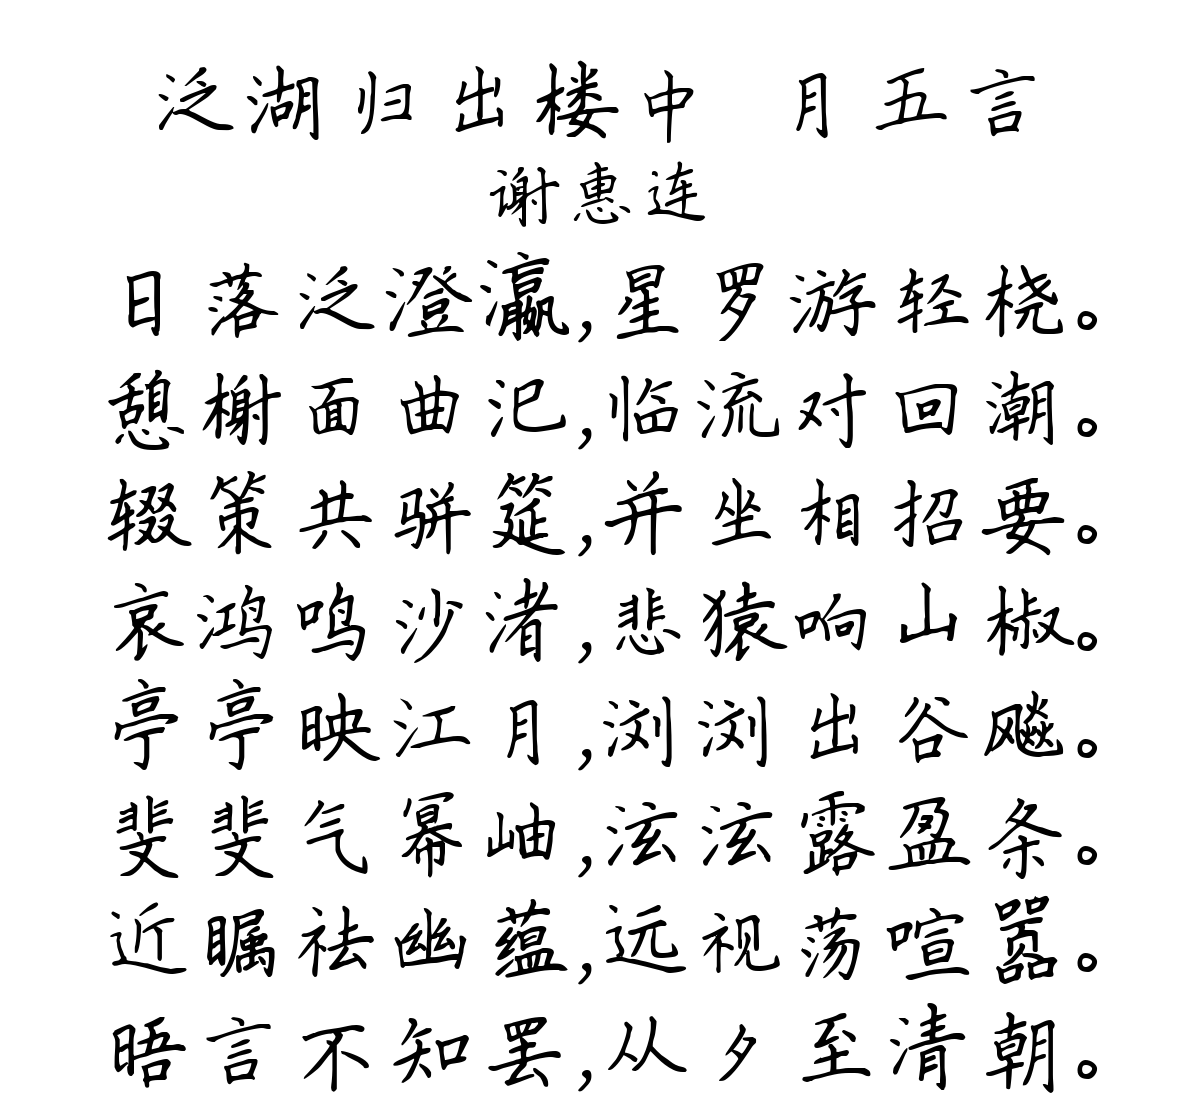 泛湖归出楼中 月五言
谢惠连
日落泛澄瀛,星罗游轻桡。
憩榭面曲汜,临流对回潮。
辍策共骈筵,并坐相招要。
哀鸿鸣沙渚,悲猿响山椒。
亭亭映江月,浏浏出谷飚。
斐斐气幂岫,泫泫露盈条。
近瞩祛幽蕴,远视荡喧嚣。
晤言不知罢,从夕至清朝。